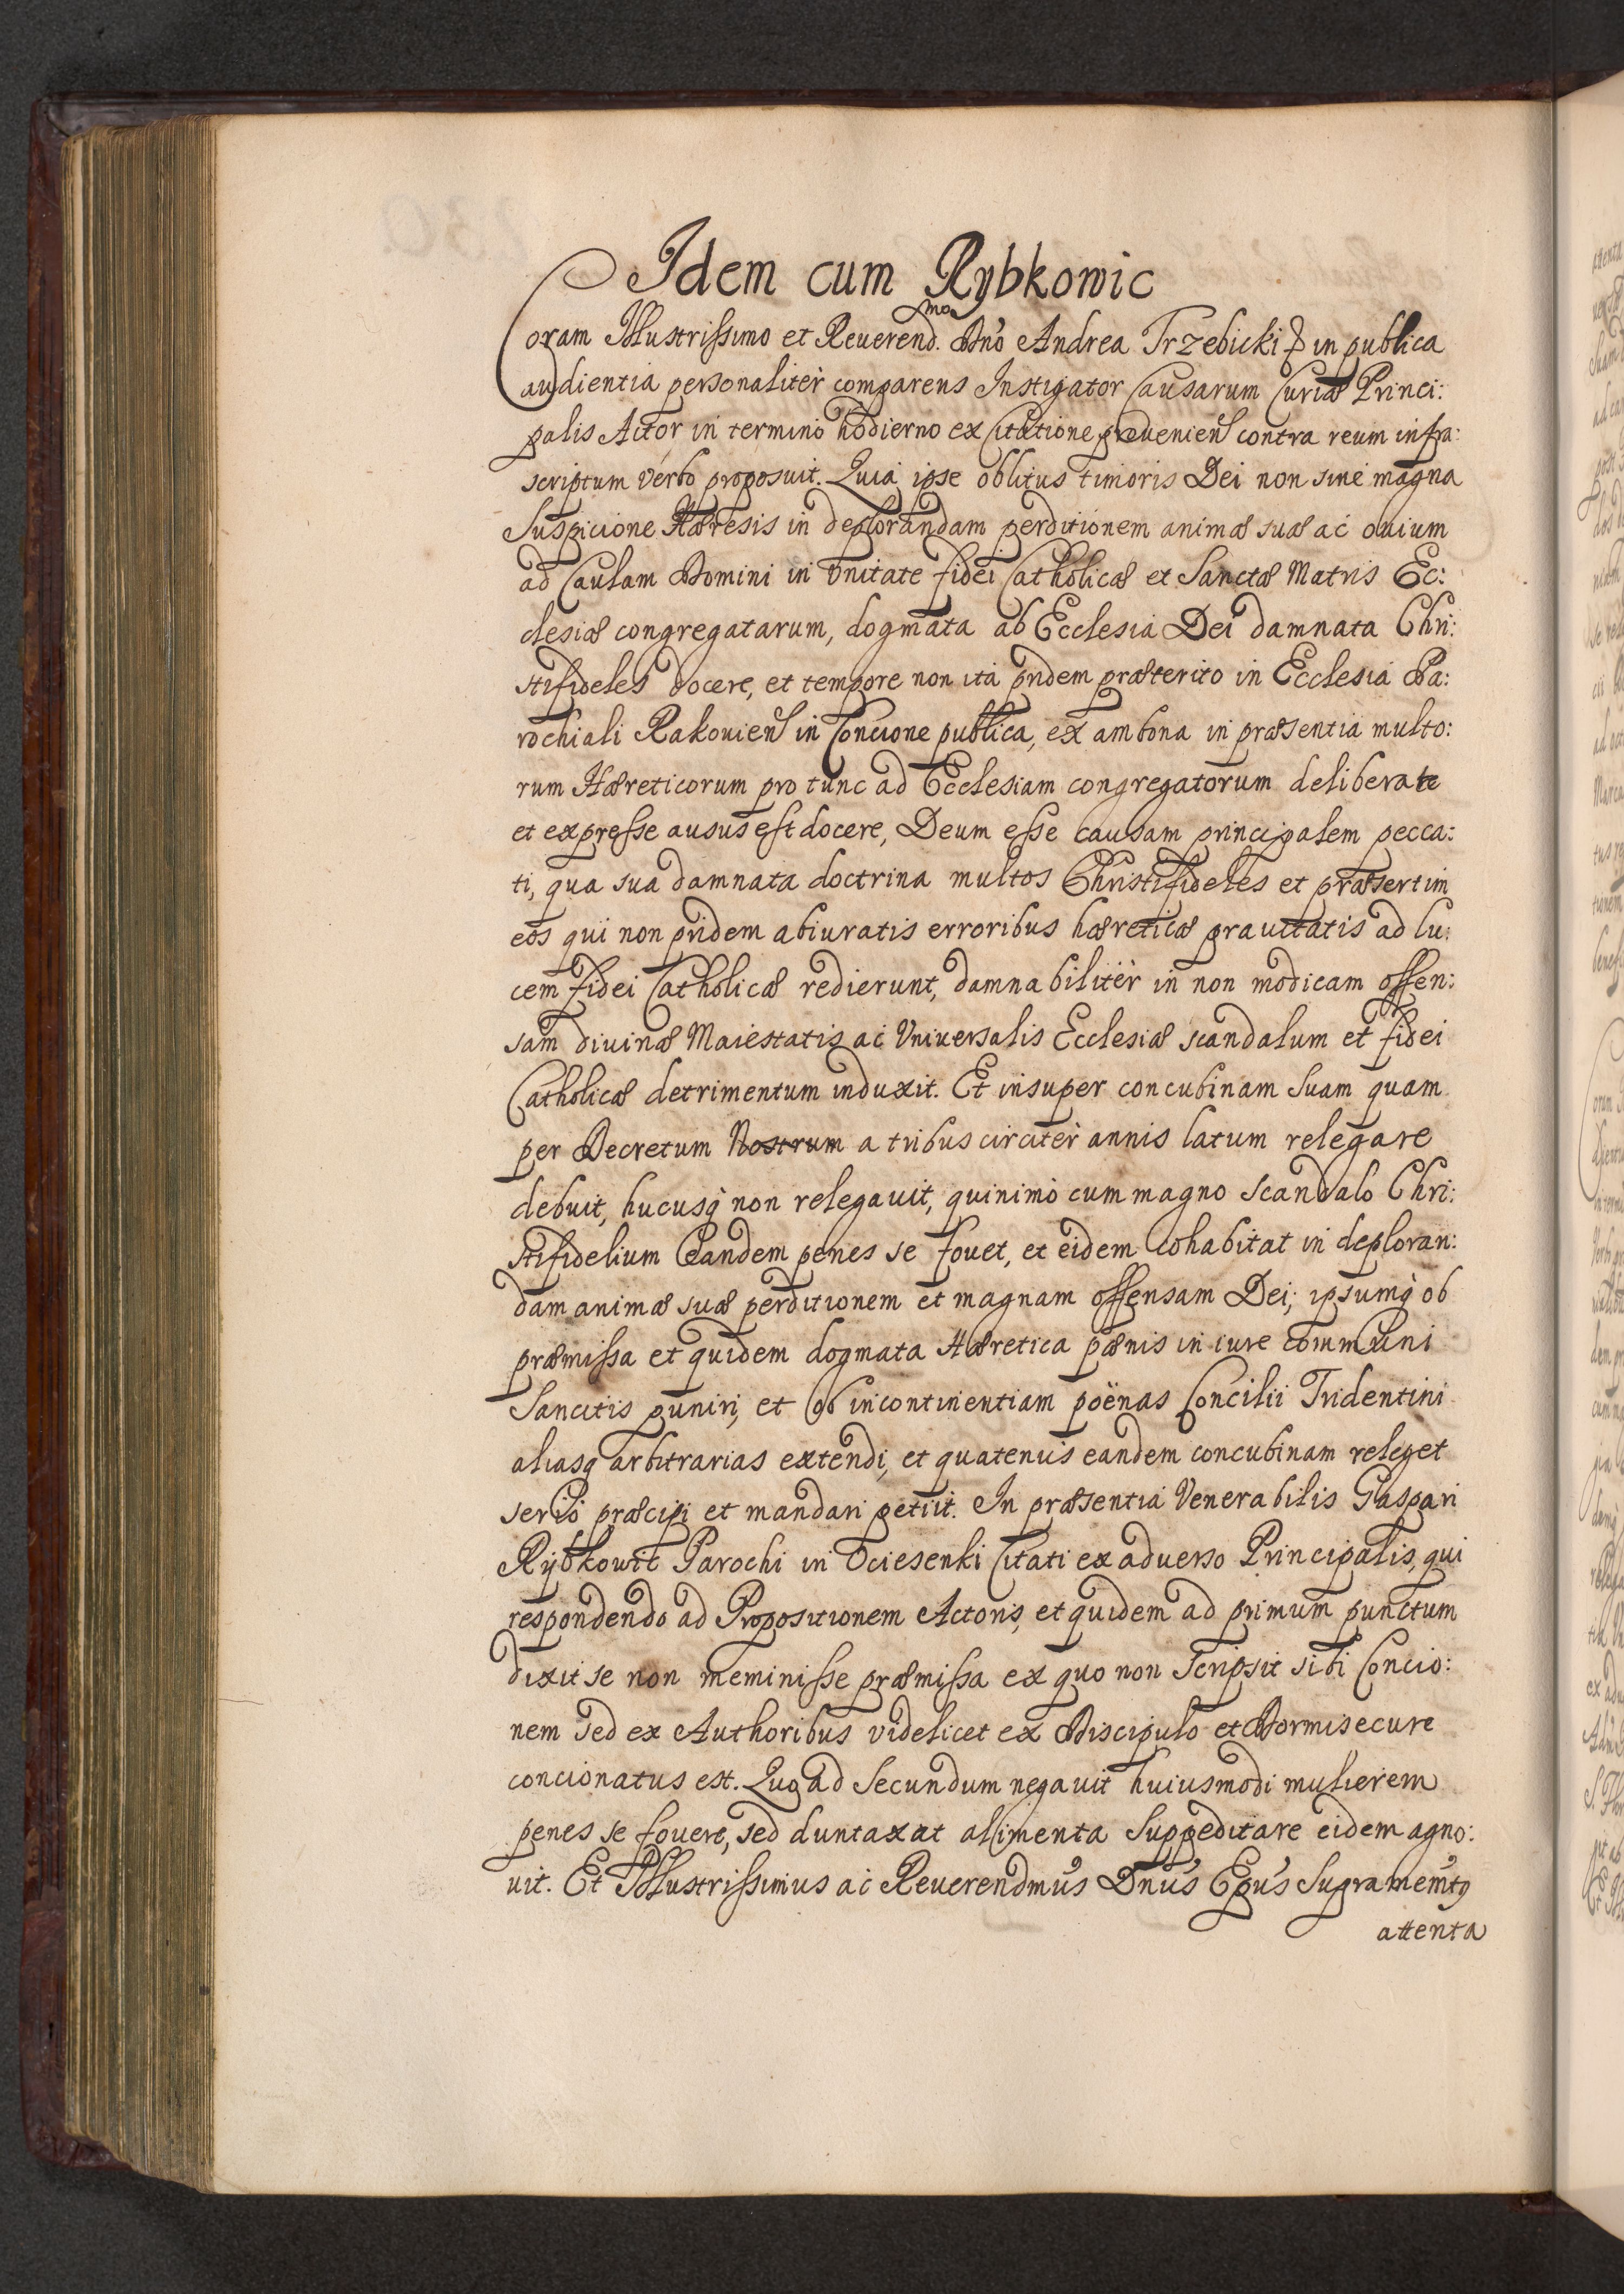 Idem cum Rybkowic
Coram Illustrissimo et Reuerend.mo Dno Andrea Trzebicki in publica
audientia personaliter comparens Instigator Causarum Curiæ Princi:
palis Actor in termino hodierno ex Citatione proueniens contra reum infra:
scriptum verbo proposuit. Quia ipse oblitus timoris Dei non sine magna
Suspicione Hæresis in deplorandam perditionem animæ suæ ac ouium
ad Caulam Domini in Vnitate fidei Catholicæ et Sanctæ Matris Ec:
clesiæ congregatarum, dogmata ab Ecclesia Dei damnata Chri:
stifideles docere, et tempore non ita pridem præterito in Ecclesia Pa:
rochiali Rakouiens in Concione publica, ex ambona in præsentia multo:
rum Hæreticorum pro tunc ad Ecclesiam congregatorum deliberate
et expresse ausus est docere, Deum esse causam principalem pecca:
ti, qua sua damnata doctrina multos Christifideles et præsertim
eos qui non pridem abiuratis erroribus hæreticæ prauitatis ad lu:
cem fidei Catholicæ redierunt, damnabiliter in non modicam offen:
sam diuinæ Maiestatis ac Vniuersalis Ecclesiæ scandalum et fidei
Catholicæ detrimentum induxit. Et insuper concubinam Suam quam
per Decretum Nostrum a tribus circiter annis latum relegare
debuit, hucusq non relegauit, quinimo cum magno Scandalo Chri:
stifidelium Eandem penes se fouet, et eidem cohabitat in deploran:
dam animæ suæ perditionem et magnam offensam Dei; ipsumq ob
præmissa et quidem dogmata Hæretica pænis in iure communi
Sancitis puniri, et ob incontinentiam poënas Concilii Tridentini
aliasq arbitrarias extendi, et quatenus eandem concubinam releget
serio præcipi et mandari petiit. In præsentia Venerabilis Gaspari
Rybkowic Parochi in Ociesenki Citati ex aduerso Principalis, qui
respondendo ad Propositionem Actoris, et quidem ad primum punctum
dixit se non meminisse præmissa ex quo non Scripsit sibi Concio:
nem sed ex Authoribus videlicet ex Discipulo et Dormisecure
concionatus est. Quo ad Secundum negauit huiusmodi mulierem
penes se fouere, sed duntaxat alimenta Suppeditare eidem agno:
uit. Et Illustrissimus ac Reuerendmus Dnus Epus Supramemtg
attenta